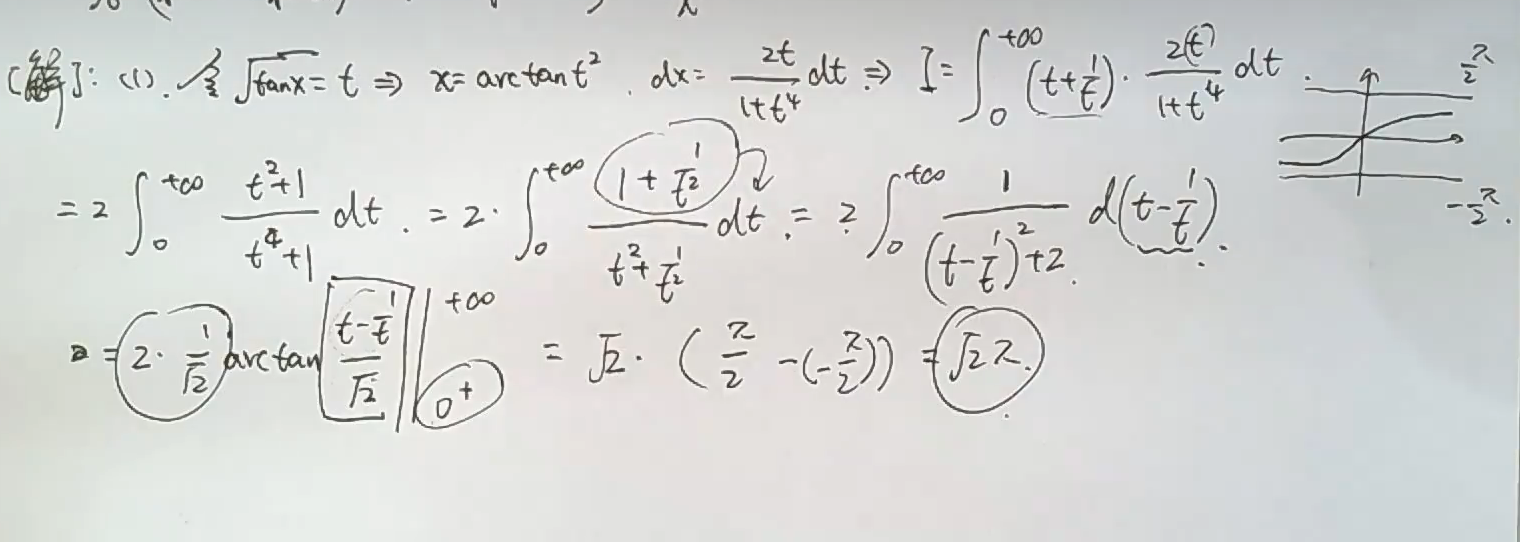 [解]: (1). 令 √tanx = t ⇒ x = arctan t², dx = 2t/(1+t⁴) dt ⇒ I = ∫₀^{+∞} (t + 1/t) · 2t/(1+t⁴) dt.
= 2 ∫₀^{+∞} (t²+1)/(t⁴+1) dt. = 2 · ∫₀^{+∞} (1 + 1/t²)/(t² + 1/t²) dt. = 2 ∫₀^{+∞} 1/((t - 1/t)² + 2) d(t - 1/t).
= 2 · 1/√2 arctan (t - 1/t)/√2 |_{0⁺}^{+∞} = √2 · (π/2 - (-π/2)) = √2 π.
π/2
-π/2.